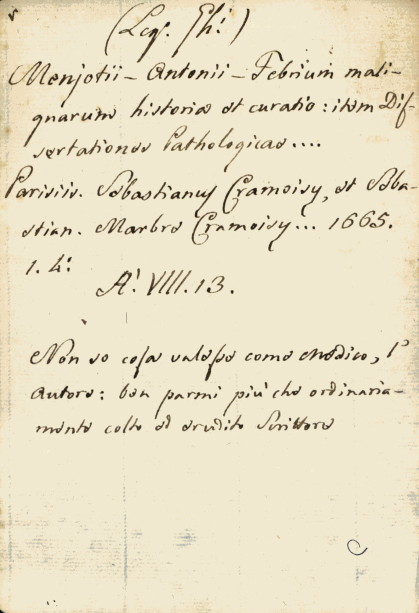 (Leg. Ghi)
Menjotii - Antonii - Febrium mali-
gnarum historia et curatio: item Dis-
sertationes Pathologicae....
Parisiis. Sebastianus Cramoisy, et Seba-
stian. Marbre Cramoisy... 1665.
1. 4:
A. VIII. 13.
Non so cosa valesse come Medico, l'
autore: ben parmi più che ordinaria-
mente colto ed erudito Scrittore
C